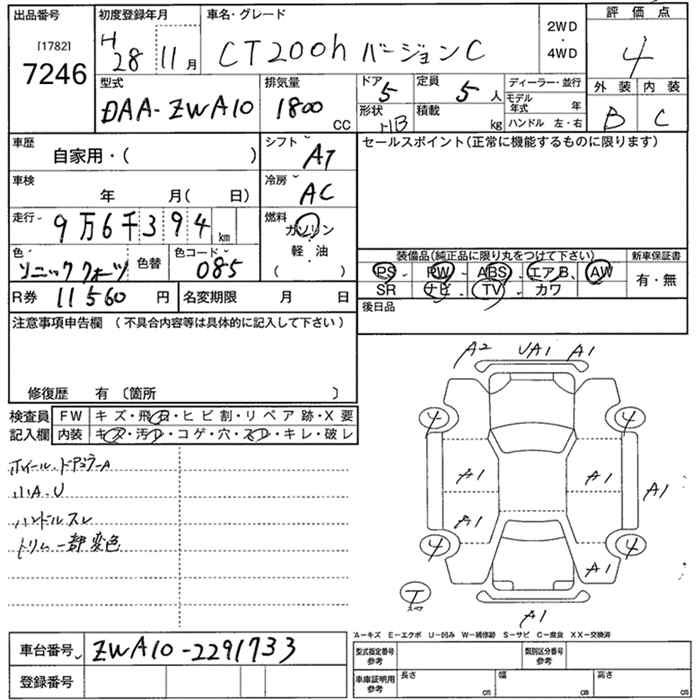 出品番号
[1782]
7246
初度登録年月
H
28 11月
車名・グレード
CT200h バージョンC
2WD
・
4WD
評価点
4
型式
DAA-ZWA10
排気量
1800
CC
ドア 5
形状 HB
定員 5 人
積載 kg
ディーラー・並行
モデル年式 年
ハンドル 左・右
外装 内装
B C
車歴
自家用・( )
シフト
AT
セールスポイント(正常に機能するものに限ります)
車検
年 月( 日)
冷房
AC
走行
9万6千394km
燃料
ガソリン
・
軽・油
( )
色
ソニッククォーツ
色替
色コード
085
装備品(純正品に限り丸をつけて下さい) 新車保証書
PS PW ABS エアB AW
SR ナビ TV カワ
有・無
R券 11560 円
名変期限 月 日
後日品
注意事項申告欄 (不具合内容等は具体的に記入して下さい)
修復歴 有 〔箇所 〕
検査員
記入欄
FW キズ・飛石・ヒビ割・リペア跡・X要
内装 キズ・汚レ・コゲ・穴・スレ・キレ・破レ
ホイール、ドアミラーA
小A.U
ハンドルスレ
トリム一部変色
A2 UA1 A1
4 4
A1 A1
A1
A1
4 4
A1
A1
A-キズ E-エクボ U-凹み W-補修跡 S-サビ C-腐食 XX-交換済
車台番号 ZWA10-2291733
登録番号
型式指定番号
参考
類別区分番号
参考
車庫証明用
参考
長さ cm
幅 cm
高さ cm